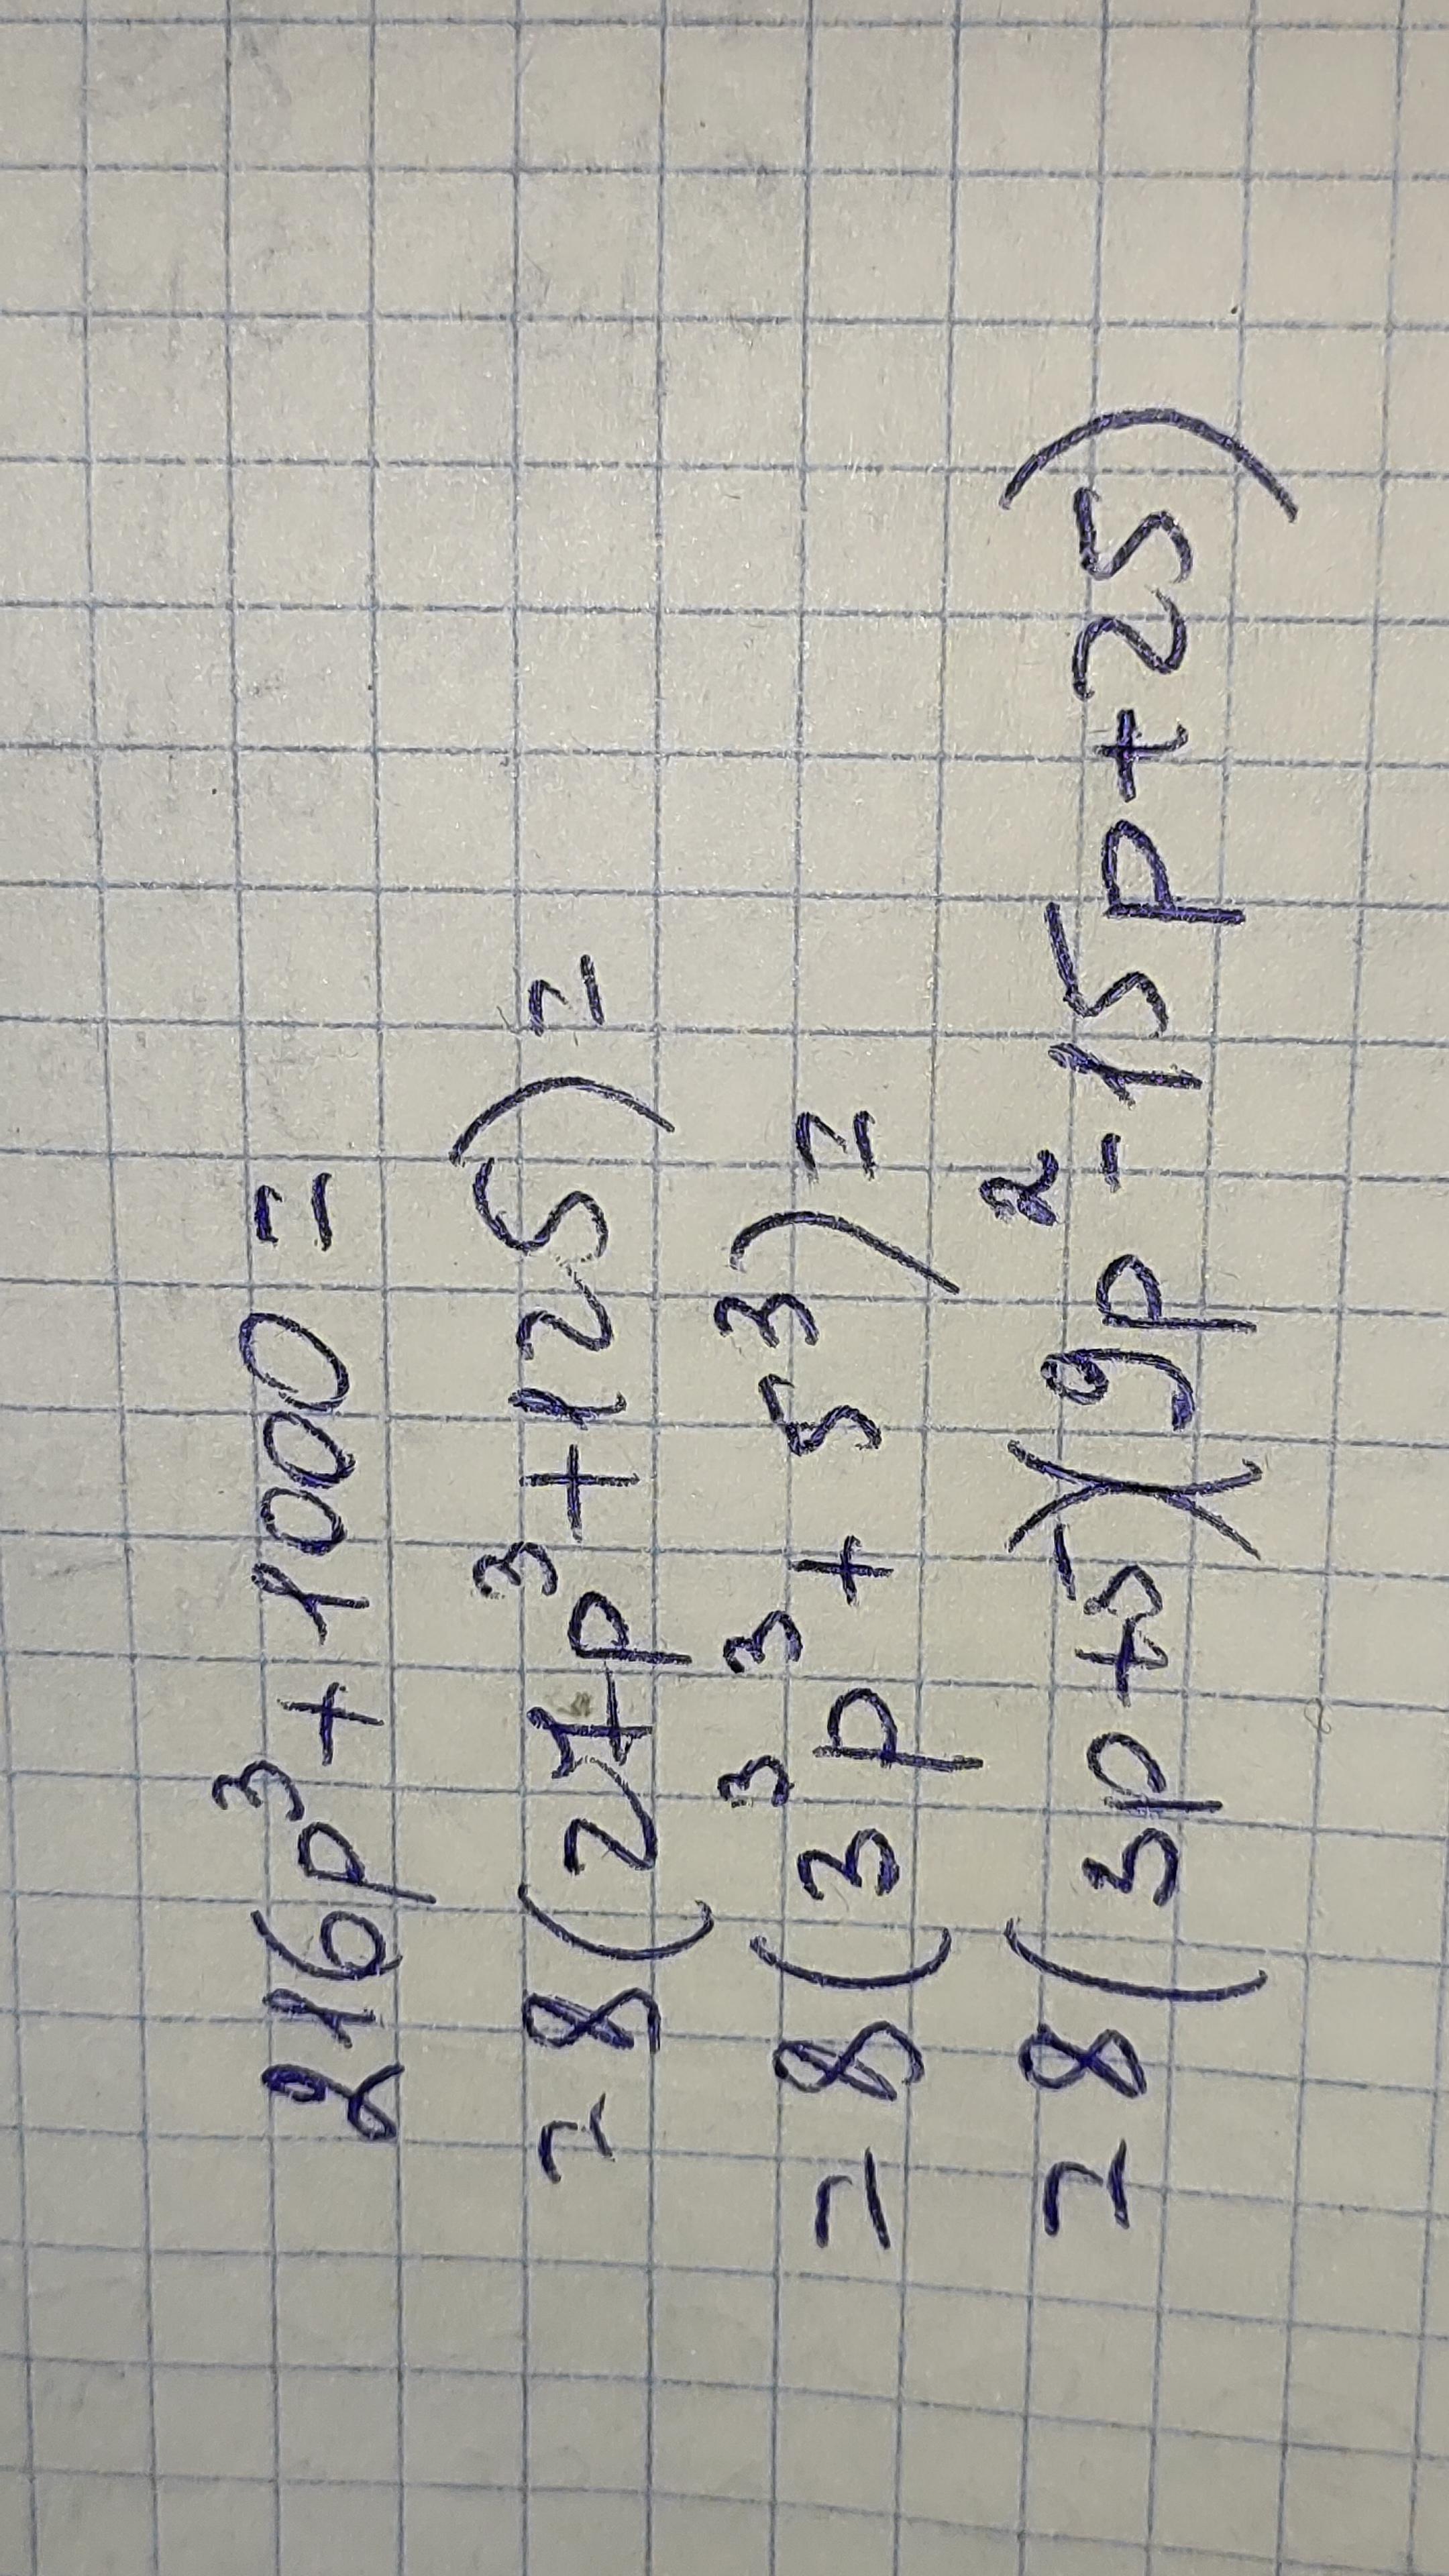 216p³+1000=
=8(27p³+125)=
=8(3³p³+5³)=
=8(3p+5)(9p²-15p+25)